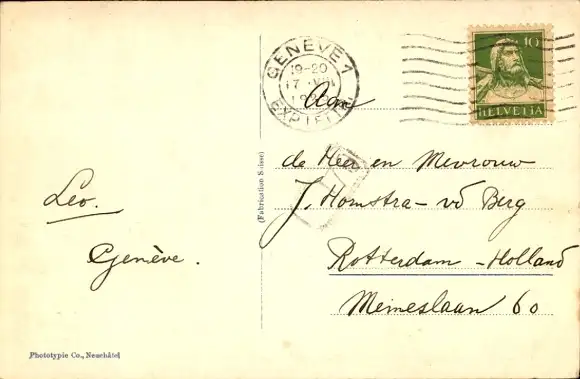 GENÈVE 1
19-20
17
EXP. LETTR.
10
HELVETIA
Aan
de Heer en Mevrouw
J. Homstra - vd Berg
Rotterdam - Holland
Meineslaan 60
Leo.
Genève.
(Fabrication Suisse)
Phototypie Co., Neuchâtel